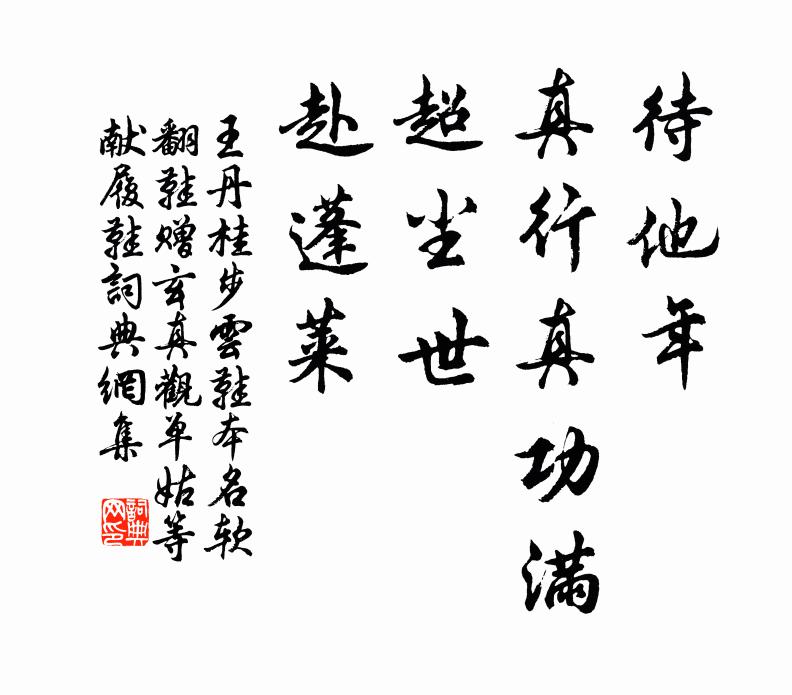 待他年
真行真功滿
超尘世
赴蓬莱
王丹桂步雲鞋本名软
翻鞋赠玄真觀单姑等
献履鞋詞典網集
詞典网印